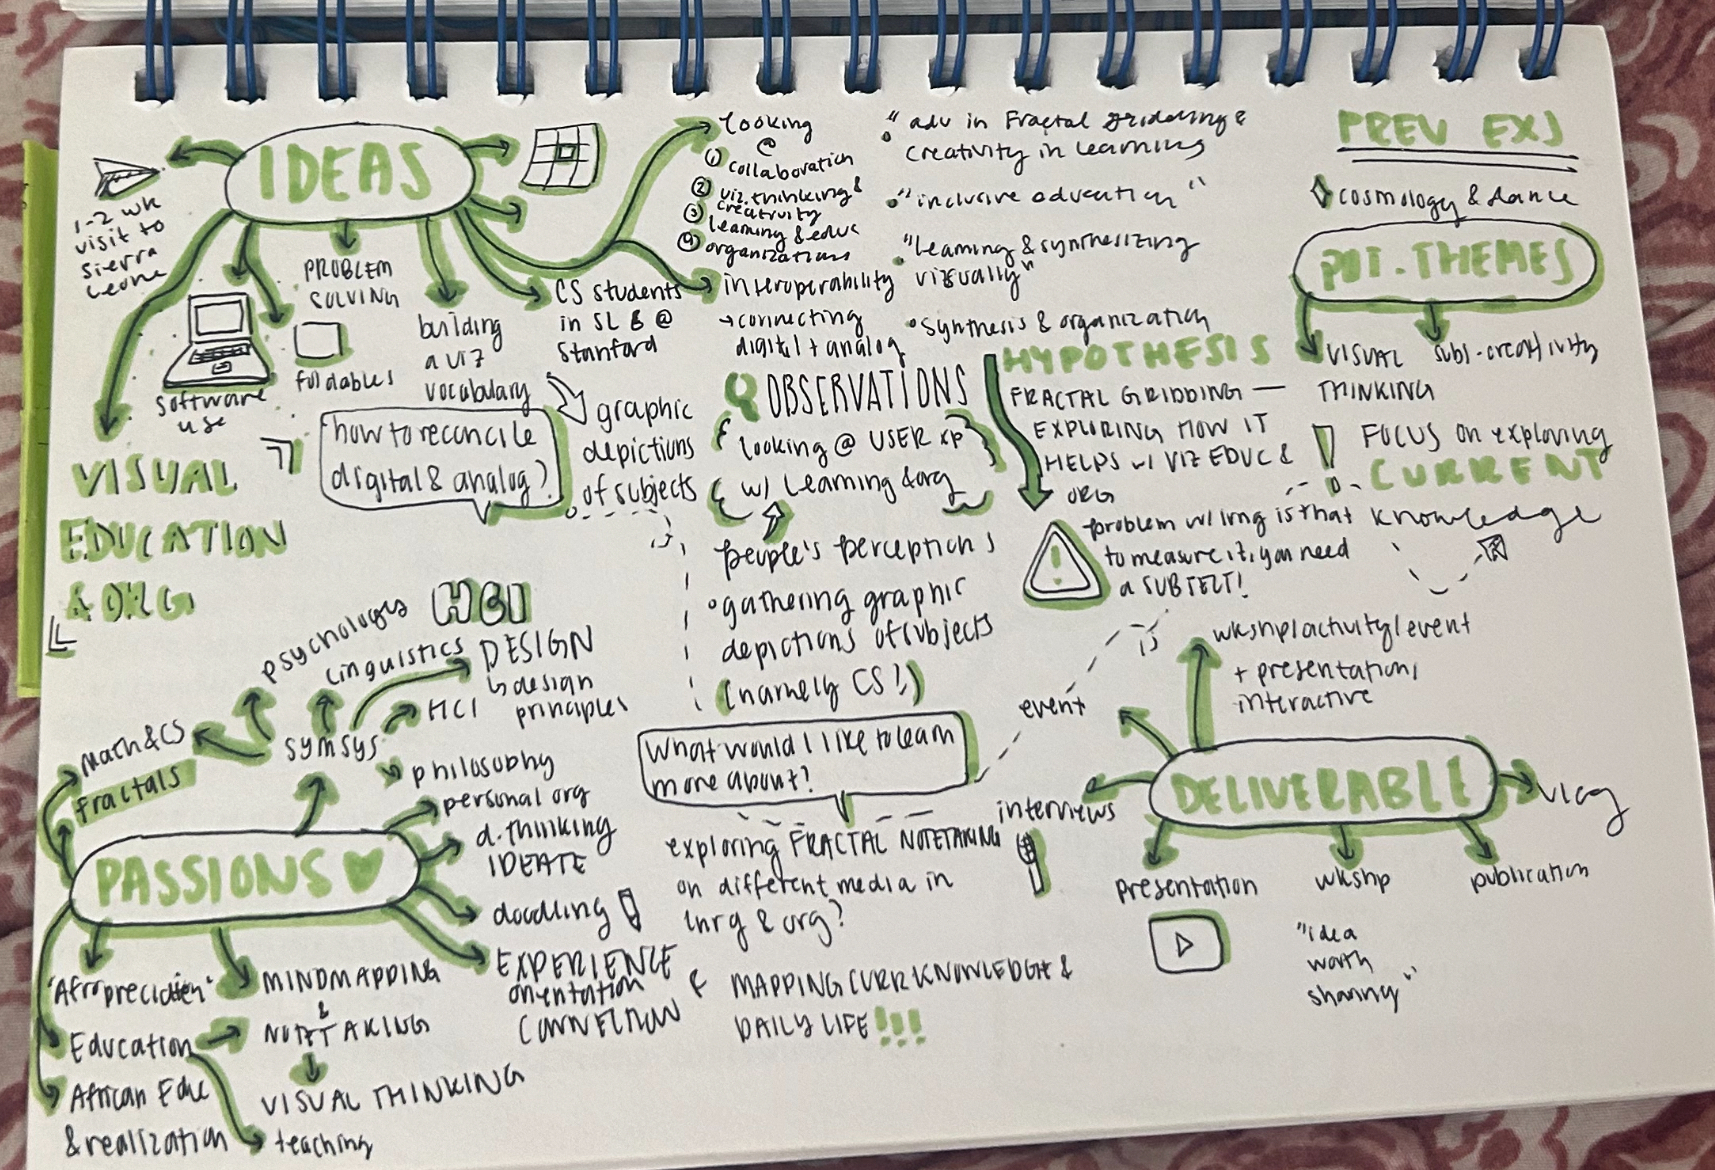 IDEAS
1-2 wk
visit to
Sierra
Leone
PROBLEM
SOLVING
software
use
foldables
building
a viz
vocabulary
CS students
in SL & @
Stanford
looking
@
① collaboration
② viz. thinking &
creativity
③ learning & educ
④ organizations
interoperability
→ connecting
digital + analog
" adv in Fractal gridding &
creativity in learning
• "inclusive education"
• "learning & synthesizing
visually"
• synthesis & organization
PREV EXJ
cosmology & dance
POT. THEMES
VISUAL
THINKING
subj-creativity
FOCUS on exploring
CURRENT
knowledge
VISUAL
EDUCATION
& ORG
how to reconcile
digital & analog?
graphic
depictions
of subjects
OBSERVATIONS
looking @ USER xp
w/ Learning & org
people's perceptions
• gathering graphic
depictions of subjects
(namely CS!)
HYPOTHESIS
FRACTAL GRIDDING —
EXPLORING HOW IT
HELPS w/ VIZ EDUC &
ORG
!
problem w/ lrng is that
to measure it, you need
a SUBJECT!
HCI
psychology
linguistics
DESIGN
↳ design
principles
HCI
Math & CS
symsys
fractals
philosophy
personal org
d.thinking
IDEATE
doodling
PASSIONS
EXPERIENCE
orientation
CONNECTION
"Afropreciation"
MINDMAPPING
&
NOTETAKING
VISUAL THINKING
Education
African Educ
& realization
teaching
What would I like to learn
more about?
exploring FRACTAL NOTETAKING
on different media in
lnrg & org?
& MAPPING CURR KNOWLEDGE &
DAILY LIFE!!!
wkshp/activity/event
+ presentation,
interactive
event
interviews
DELIVERABLE
vlog
presentation
wkshp
publication
"idea
worth
sharing"